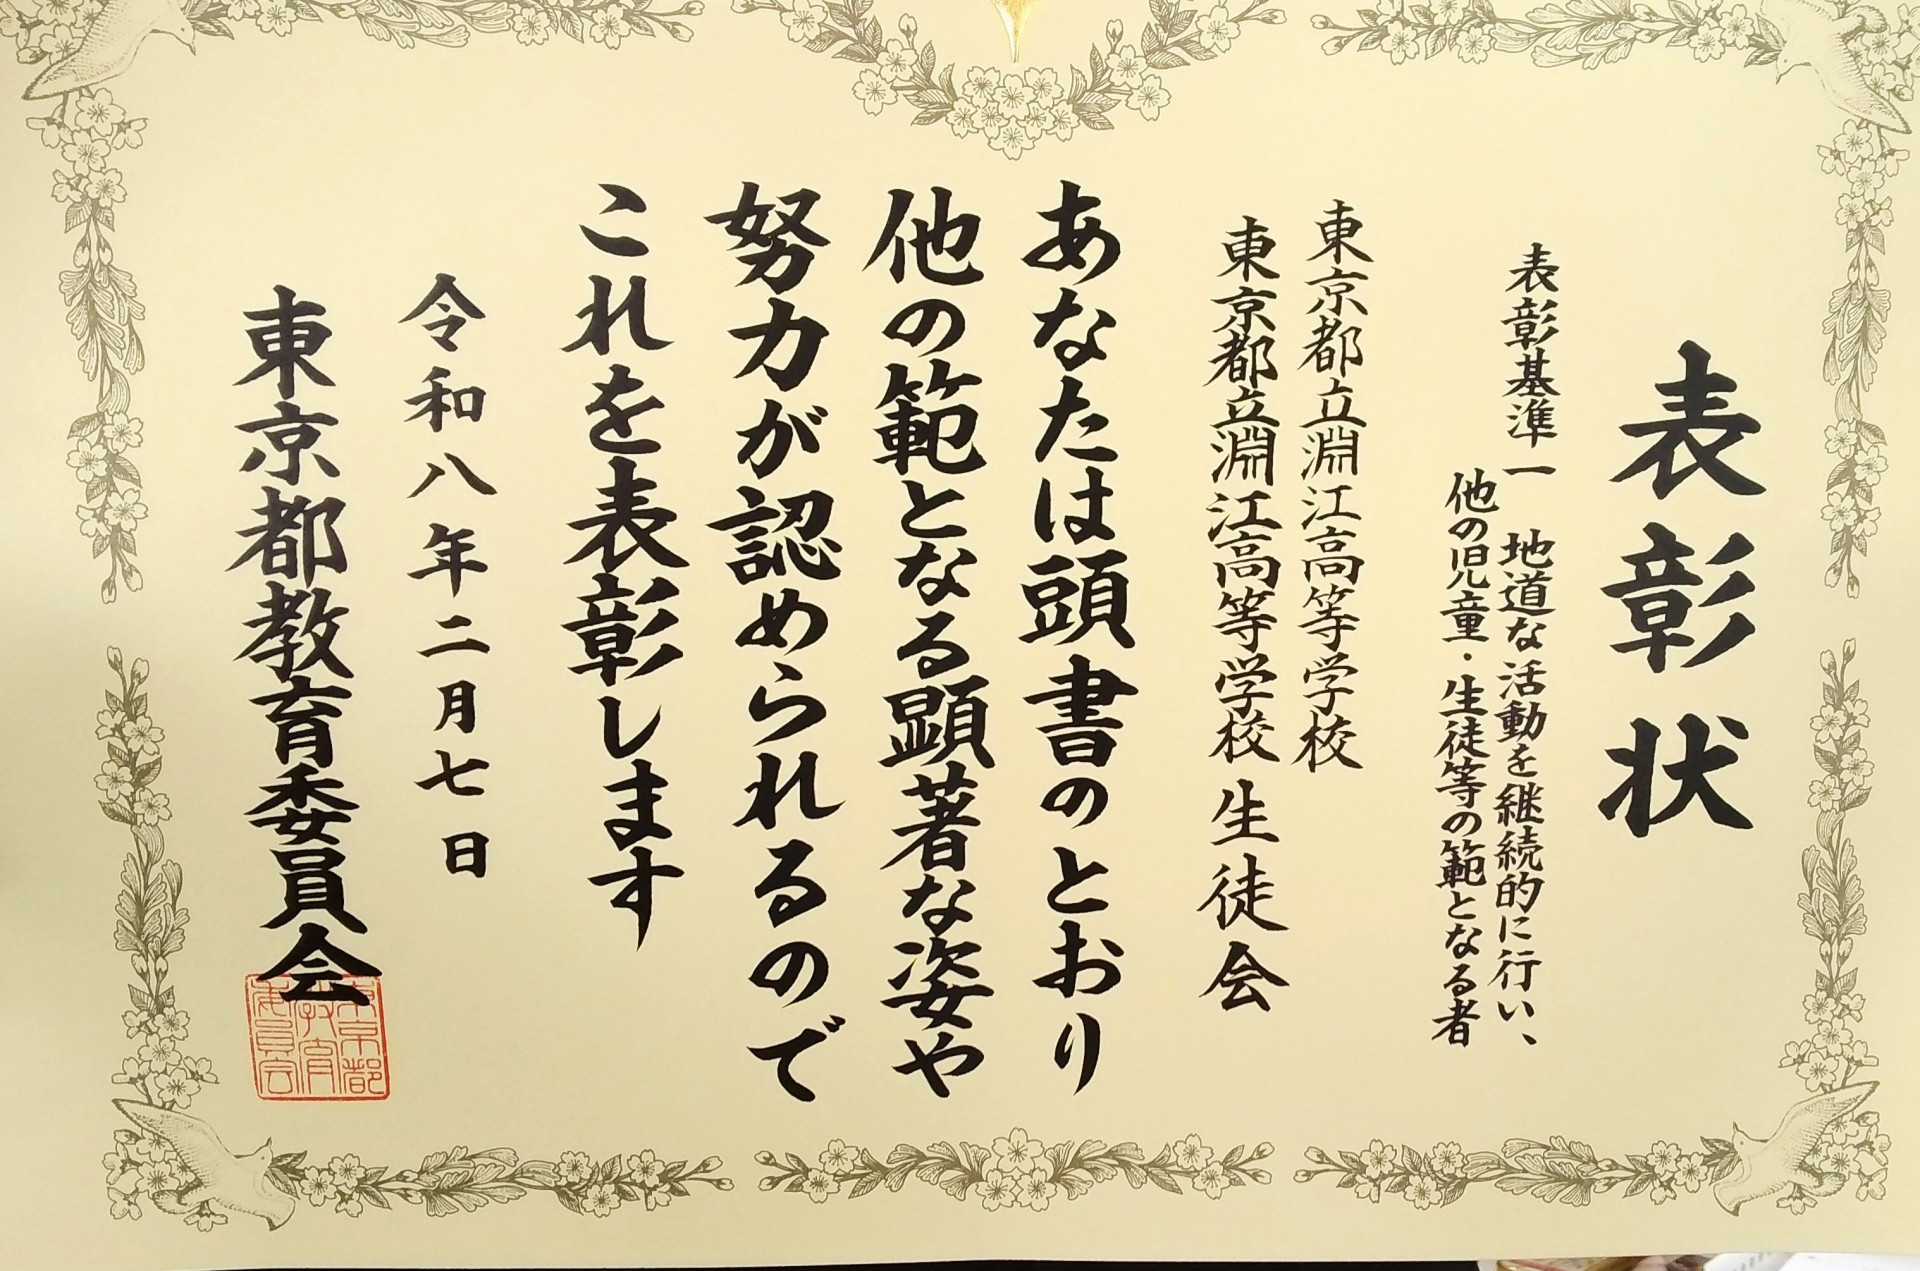 表彰状
表彰基準一　地道な活動を継続的に行い、
他の児童・生徒等の範となる者
東京都立淵江高等学校
東京都立淵江高等学校 生徒会
あなたは頭書のとおり
他の範となる顕著な姿や
努力が認められるので
これを表彰します
令和八年二月七日
東京都教育委員会
東京都
教育
委員会